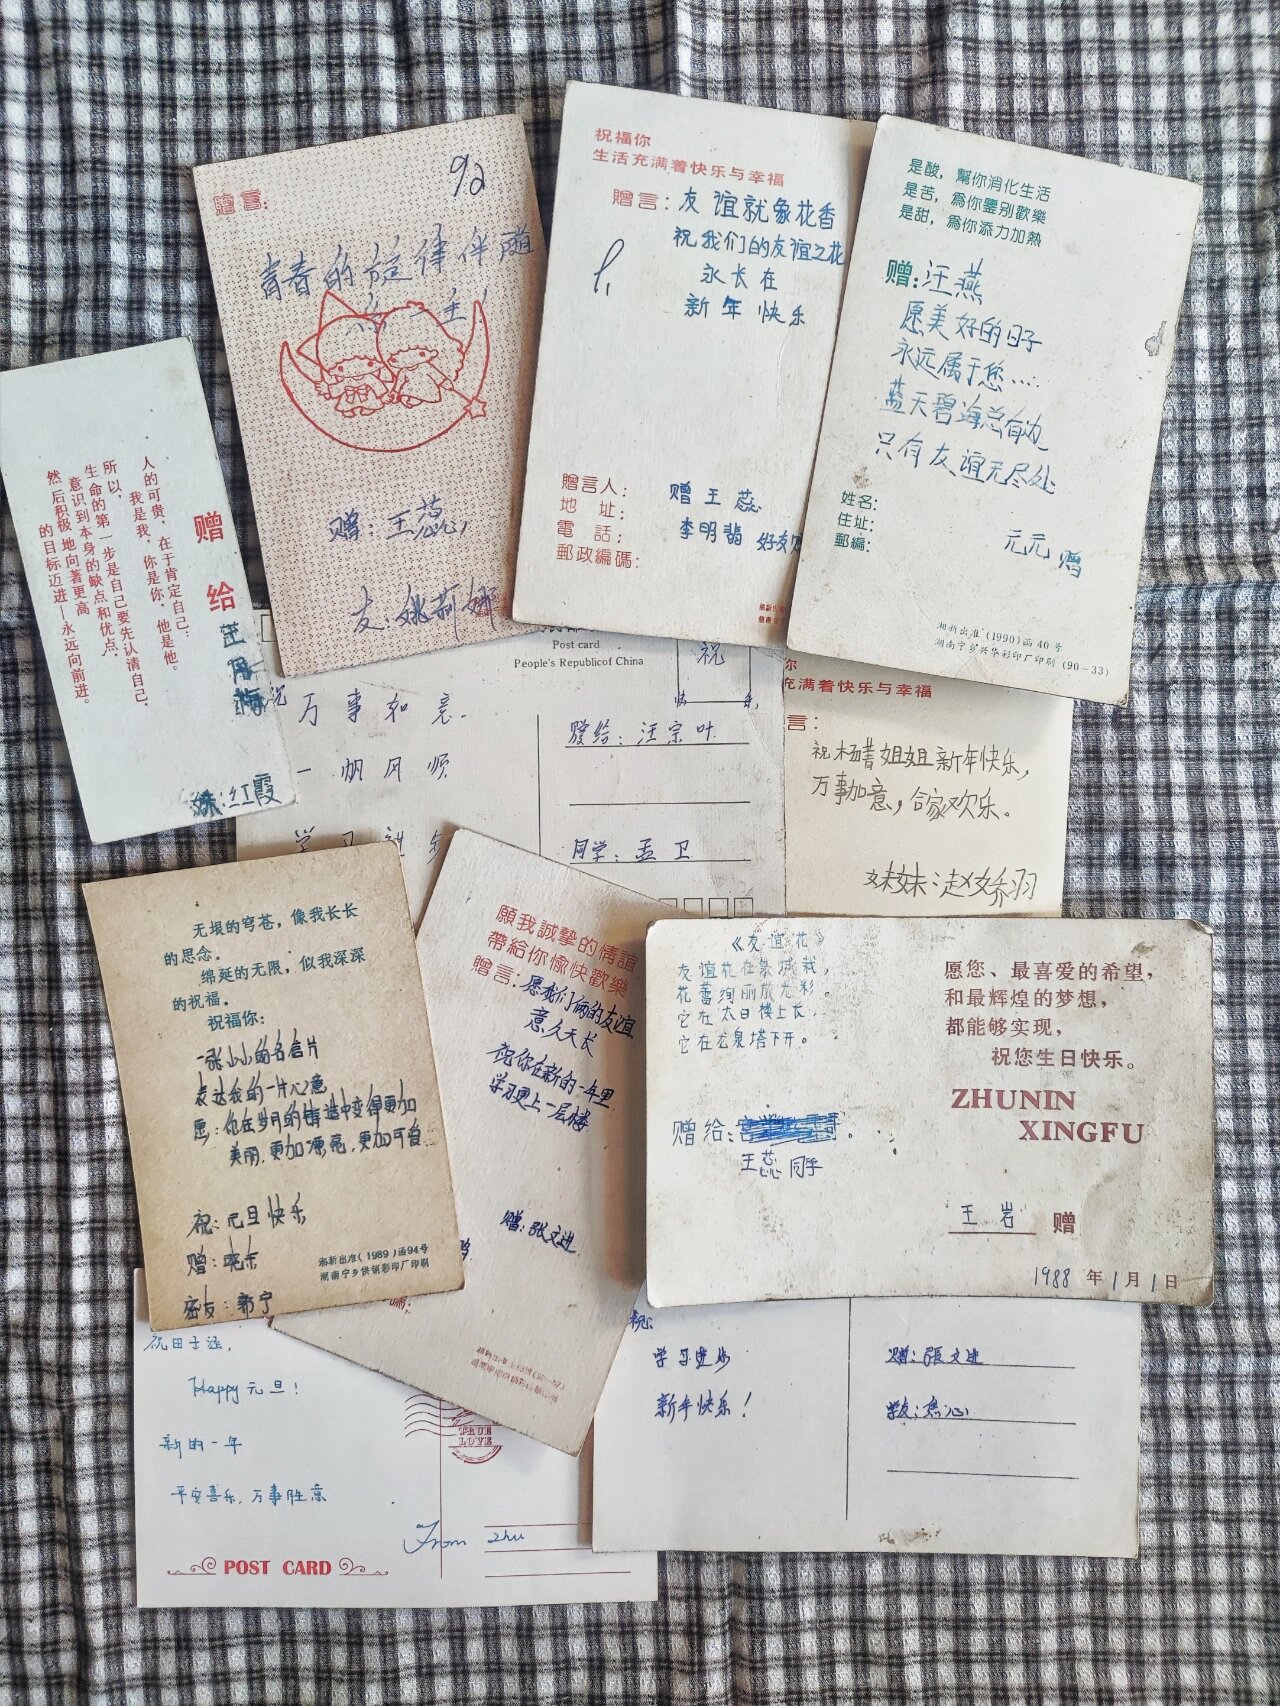 贈言:
92
青春的旋律伴随
赠:王蕊
友:姚莉娜
祝福你
生活充满着快乐与幸福
贈言:友谊就象花香
祝我们的友谊之花
永长在
新年快乐
贈言人: 赠王蕊
地 址: 李明翡 好友
電 話:
郵政編碼:
是酸,幫你消化生活
是苦,爲你鑒别歡樂
是甜,爲你添力加熱
赠:汪燕
愿美好的日子
永远属于您....
蓝天碧海总有边
只有友谊无尽处
姓名:
住址:
郵編:
元元 赠
湘新出准(1990)函40号
湖南宁乡兴华彩印厂印刷(90-33)
赠给
人的可贵,在于肯定自己:
我是我,你是你,他是他。
所以,
生命的第一步是自己要先认清自己,
意识到本身的缺点和优点,
然后积极地向著更高
的目标迈进—永远向前进。
妹:红霞
Post card
People's Republic of China
祝
快 乐,
祝万事如意.
一帆风顺
学习进步
赠给:汪宗叶
同学:孟卫
你
充满着快乐与幸福
言:
祝杨菁姐姐新年快乐,
万事如意,合家欢乐。
妹妹:赵娇羽
无垠的穹苍,像我长长
的思念。
绵延的无限,似我深深
的祝福。
祝福你:
一张小小的名信片
表达我的一片心意
愿:你在岁月的铸造中变得更加
美丽,更加漂亮,更加可爱
祝:元旦快乐
赠:晓东
密友:郭宁
湘新出准(1989)函94号
湖南宁乡供销彩印厂印刷
願我誠摯的情誼
帶給你愉快歡樂
贈言:愿我们俩的友谊
意久天长
祝你在新的一年里
学习更上一层楼
赠:张文进
《友谊花》
友谊花在泉城栽,
花蕾绚丽放光彩。
它在太白楼上长,
它在龙泉塔下开。
赠给:
王蕊同学
愿您、最喜爱的希望,
和最辉煌的梦想,
都能够实现,
祝您生日快乐。
ZHUNIN
XINGFU
王岩 赠
1988年1月1日
祝田子涵,
Happy元旦!
新的一年
平安喜乐,万事胜意
TRUE
LOVE
From zhu
POST CARD
祝:
学习进步
新年快乐!
赠:張文进